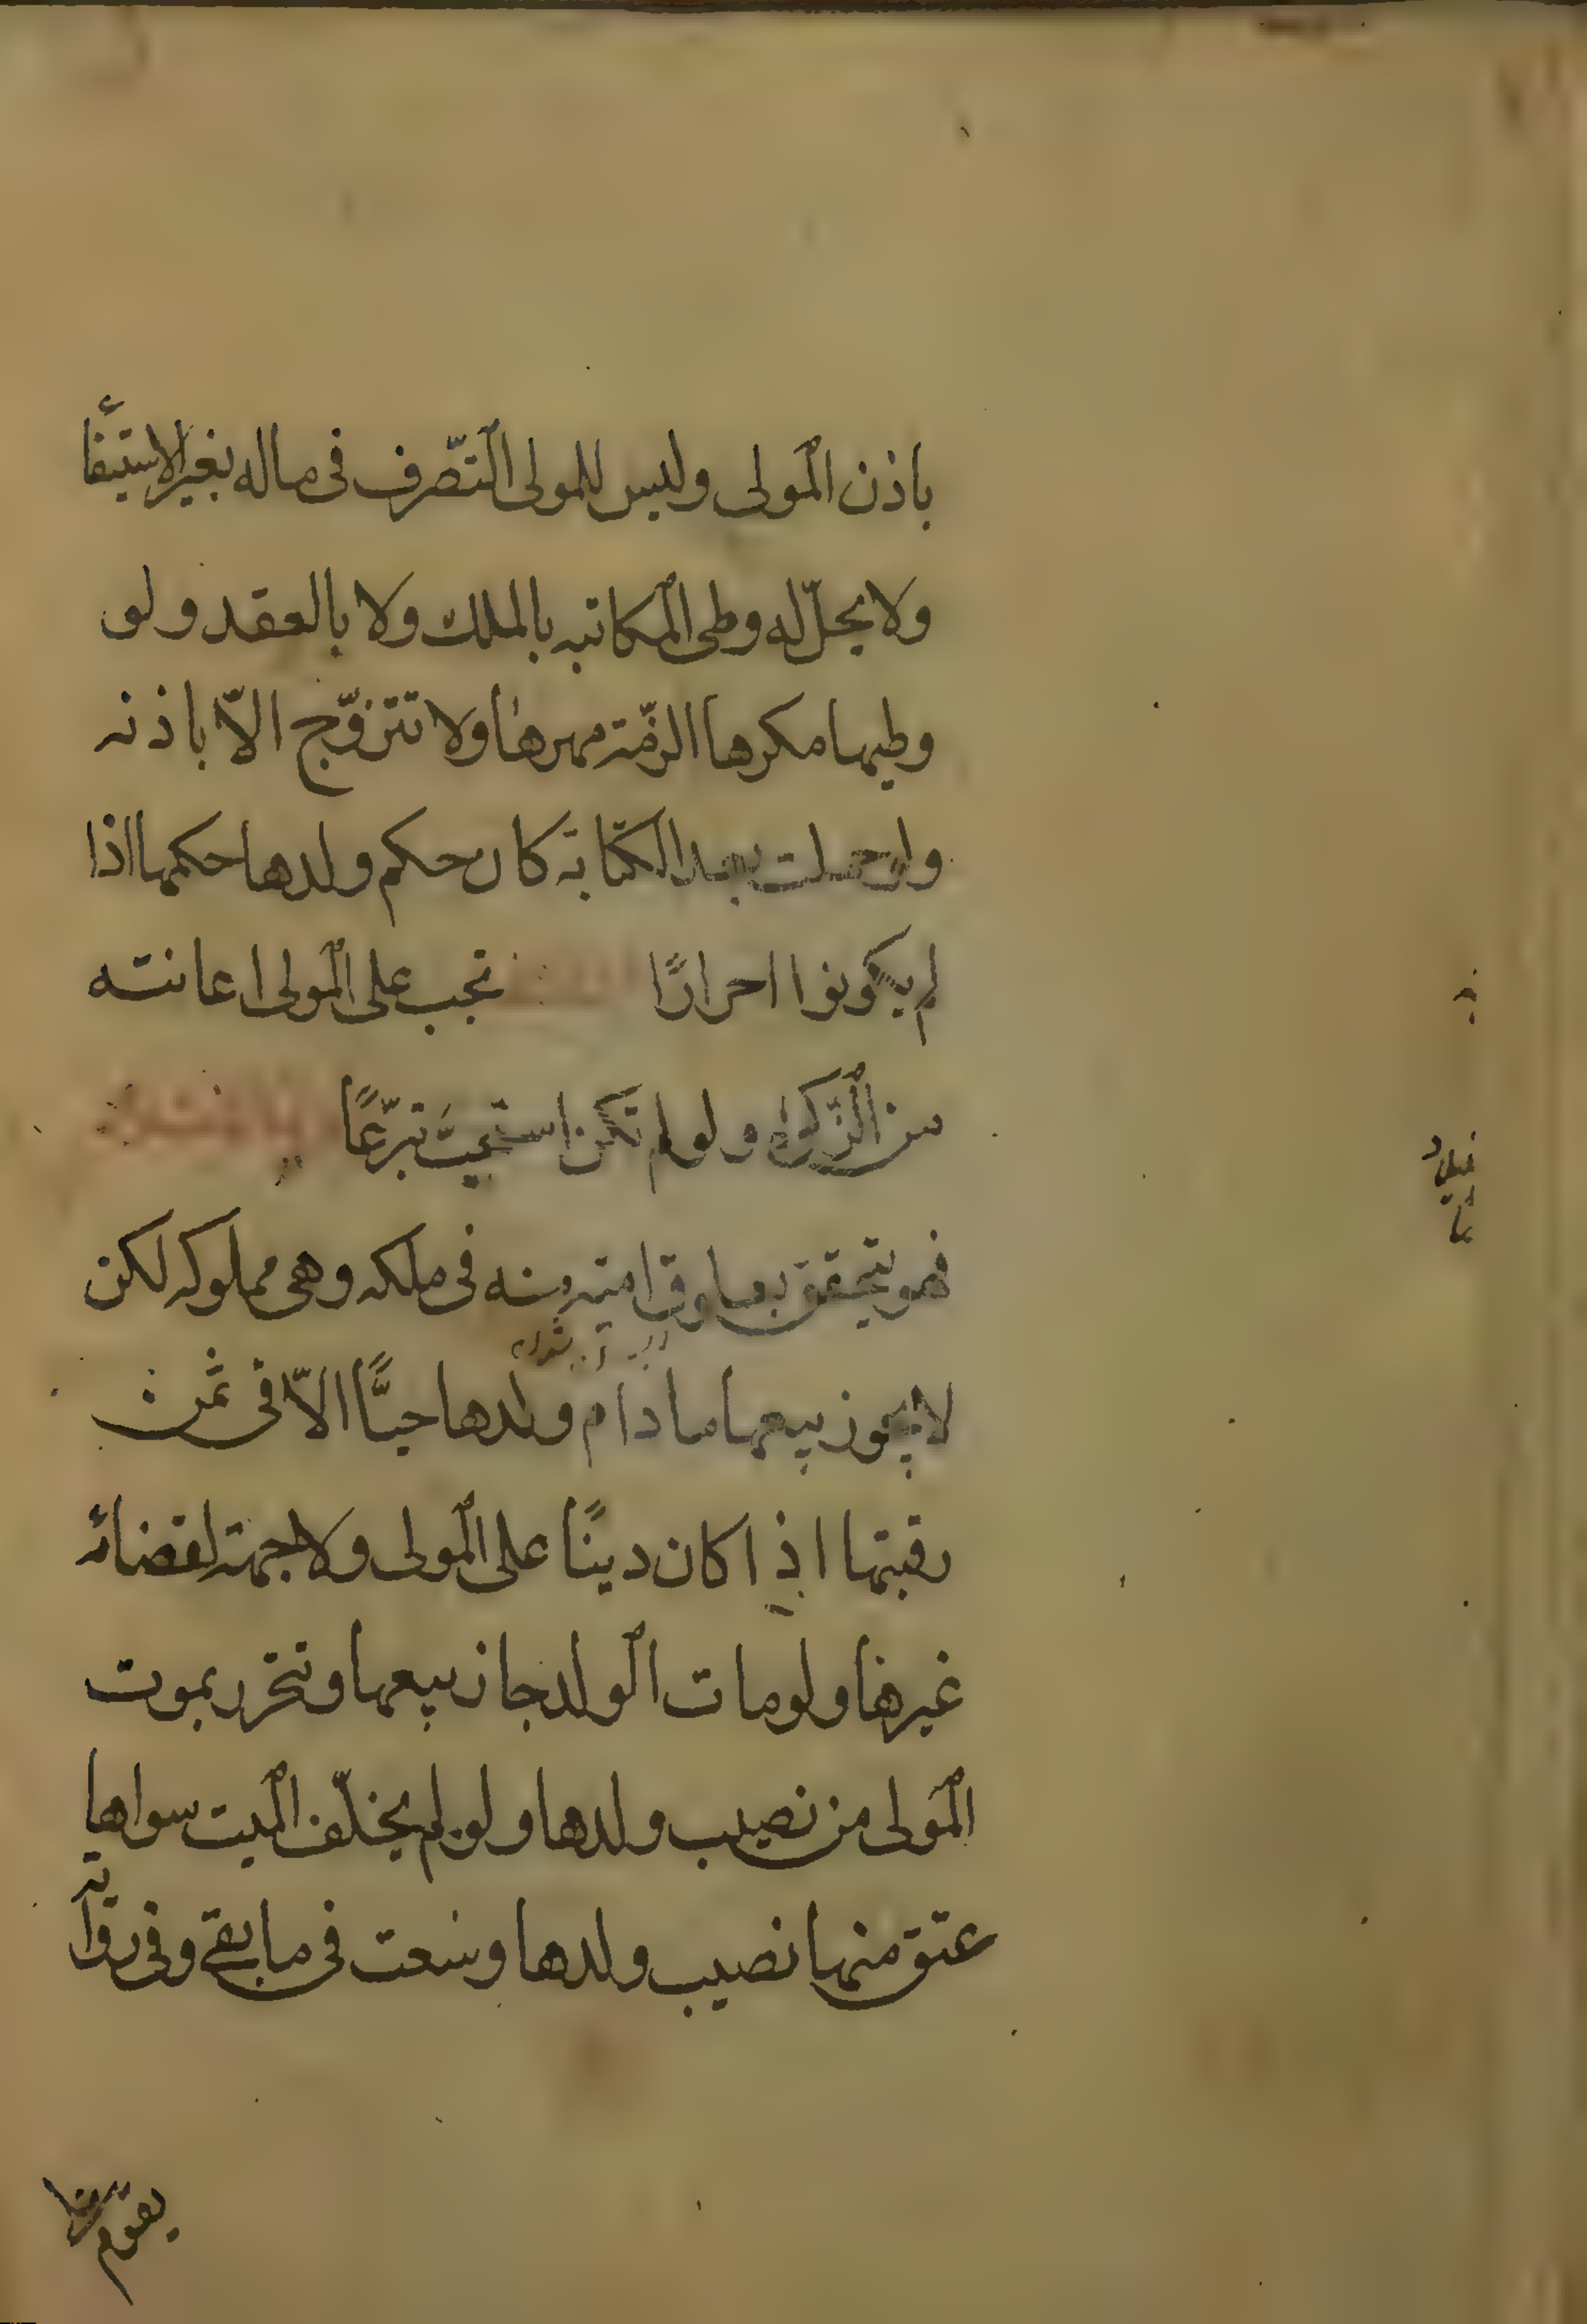 باذن المولى وليس للمولى التصّرف فى ماله بغير الاستيفاء
ولا يحلّ له وطى المكاتبه بالملك ولا بالعقد ولو
وطيها مكرها الزمّته مهرها ولا تتزوّج الاّ باذنه
وان حملت بعد الكتابة كان حكم ولدها حكمها اذا
لم يكونوا احرارًا تجب على المولى اعانته
من الزّكوٰة ولو لم تكن استحبّ تبرّعًا
فهو يتحقق بعلوق امته منه فى ملكه وهى مملوكه لكن
لا يجوز بيعها ما دام ولدها حيًّا الاّ فى ثمن
رقبتها اذا كان دينًا على المولى ولا جهة لقضائه
غيرها ولو مات الولد جاز بيعها وتتحرر بموت
المولى من نصيب ولدها ولو لم يخلّف الميت سواها
عتق منها نصيب ولدها وسعت فى ما بقى وفى رواية
يقوّم